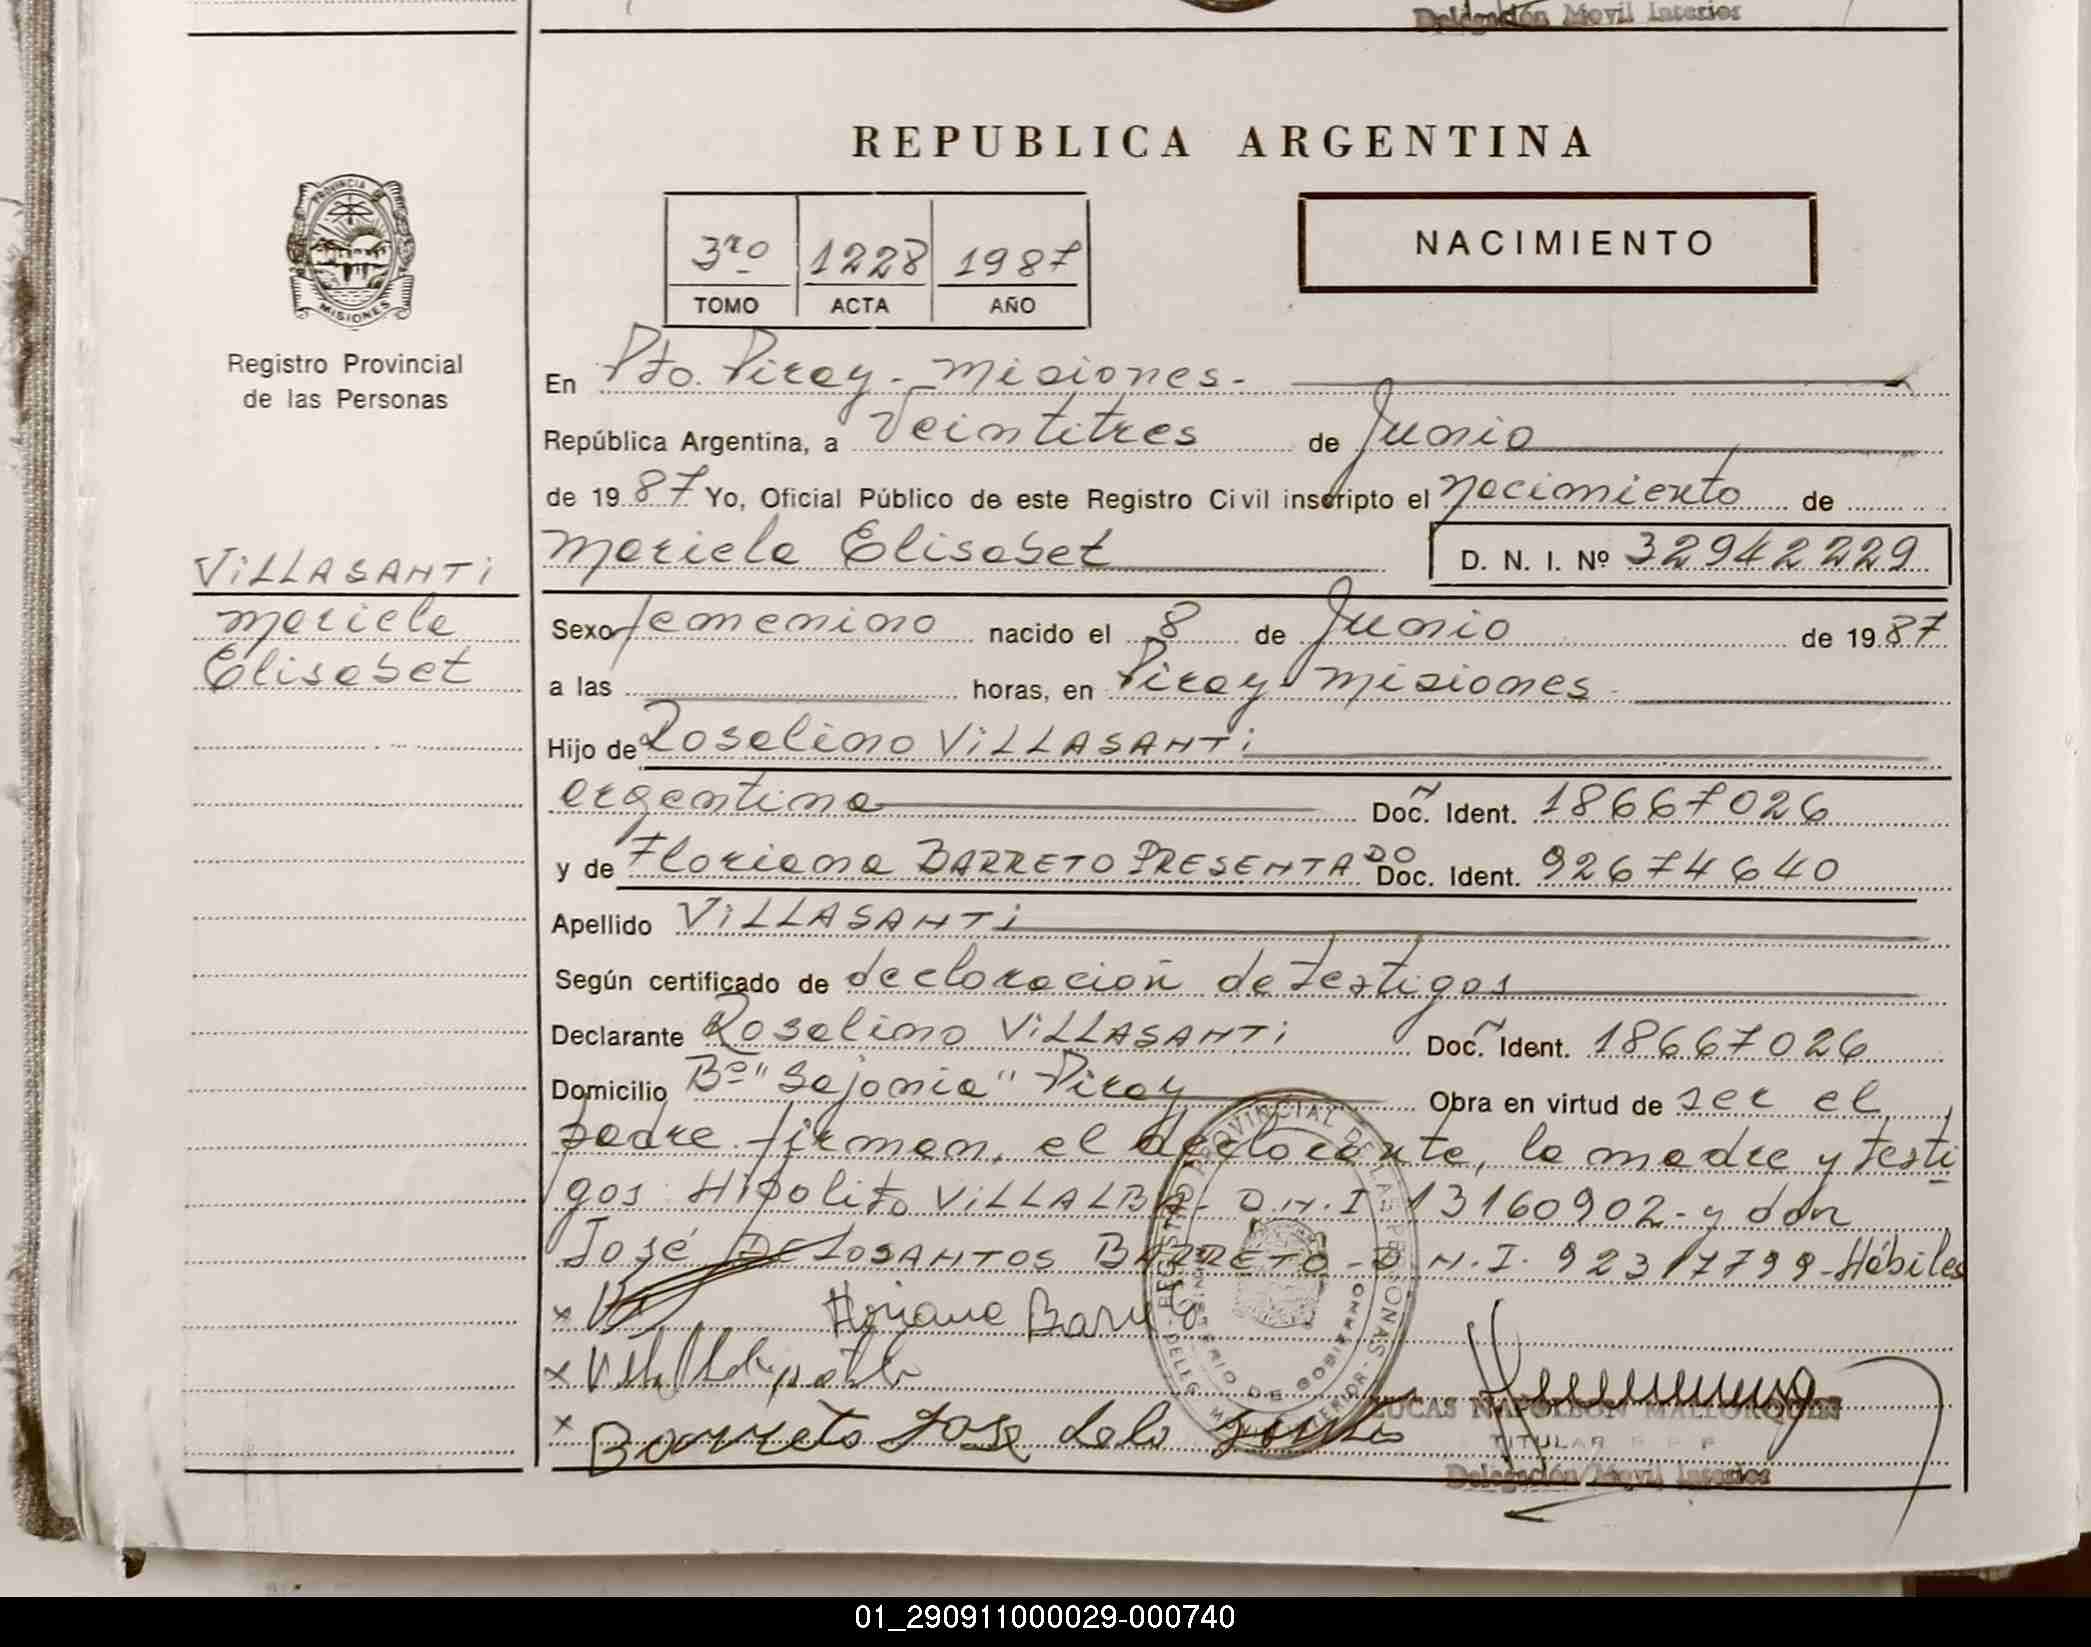 Delegación Movil Interior
REPUBLICA ARGENTINA
PROVINCIA DE
MISIONES
3ro 1228 1987
TOMO ACTA AÑO
NACIMIENTO
Registro Provincial
de las Personas
En Pto. Piray - Misiones -
República Argentina, a Veintitres de Junio
de 1987 Yo, Oficial Público de este Registro Civil inscripto el nacimiento de
Mariela Elisabet D. N. I. Nº 32942229
VILLASANTI
Mariela
Elisabet
Sexo femenino nacido el 8 de Junio de 1987
a las horas, en Piray Misiones
Hijo de Roselino VILLASANTI
argentina Doc. Ident. 18667026
y de Floriana BARRETO PRESENTADO Doc. Ident. 92674640
Apellido VILLASANTI
Según certificado de declaración de testigos
Declarante Roselino VILLASANTI Doc. Ident. 18667026
Domicilio Bº "Sajonia" Piray Obra en virtud de ser el
padre. firman, el declarante, la madre y testi
gos Hipolito VILLALBA - D.N.I 13160902 - y don
José DE LOSANTOS BARRETO - D.N.I. 92317799 - Hábiles
x
x
x Barreto Jose delo Santos
REGISTRO PROVINCIAL DE LAS PERSONAS
MINISTERIO DE GOBIERNO
LUCAS NAPOLEON MALLORQUIN
TITULAR R P P
Delegación Movil Interior
01_290911000029-000740